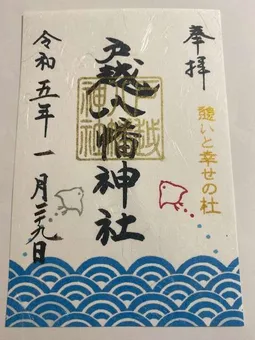 奉拝
憩いと幸せの杜
戸越八幡神社
令和五年一月二十九日